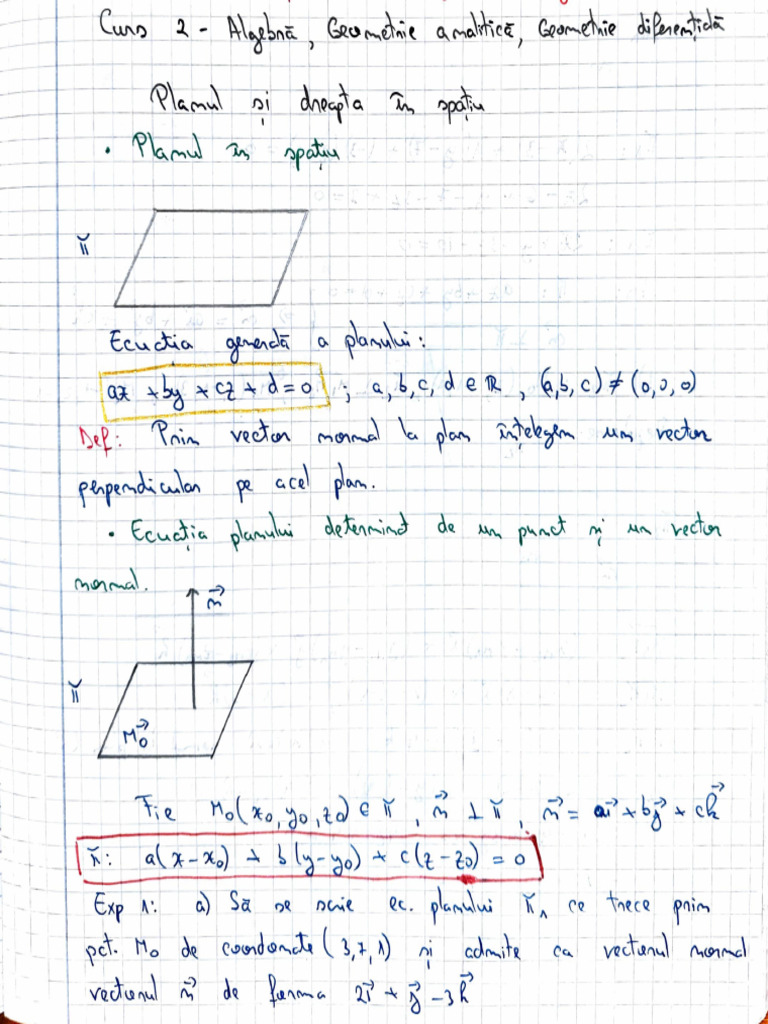 Curs 2 - Algebră, Geometrie analitică, Geometrie diferențială
Planul și dreapta în spațiu
• Planul în spațiu
π
Ecuația generală a planului:
ax + by + cz + d = 0 ; a, b, c, d ∈ ℝ, (a, b, c) ≠ (0, 0, 0)
Def: Prin vector normal la plan înțelegem un vector
perpendicular pe acel plan.
• Ecuația planului determinat de un punct și un vector
normal.
n⃗
π
M₀⃗
Fie M₀(x₀, y₀, z₀) ∈ π, n⃗ ⊥ π, n⃗ = ai⃗ + bj⃗ + ck⃗
π: a(x - x₀) + b(y - y₀) + c(z - z₀) = 0
Exp 1: a) Să se scrie ec. planului π₁ ce trece prin
pct. M₀ de coordonate (3, 7, 1) și admite ca vectorul normal
vectorul n⃗ de forma 2i⃗ + j⃗ - 3k⃗